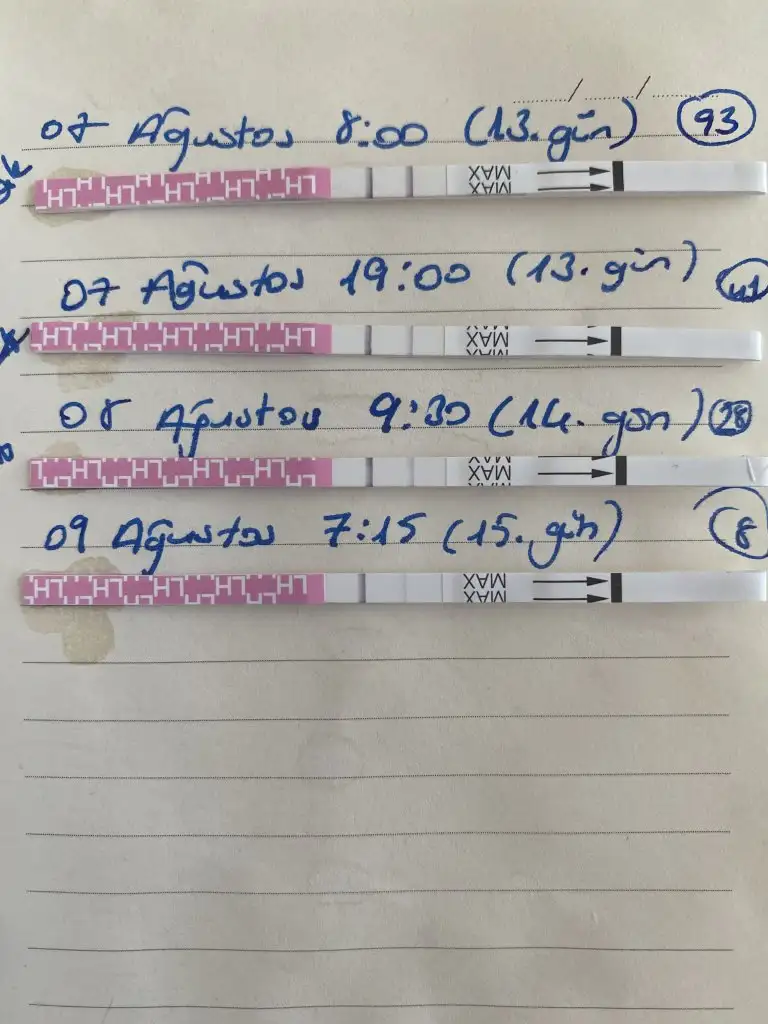 07 Ağustos 8:00 (13.gün) 93
LH LH LH LH LH MAX MAX
07 Ağustos 19:00 (13.gün) 41
LH LH LH LH LH MAX MAX
08 Ağustos 9:30 (14.gün) 28
LH LH LH LH MAX MAX
09 Ağustos 7:15 (15.gün) 8
LH LH LH LH LH MAX MAX